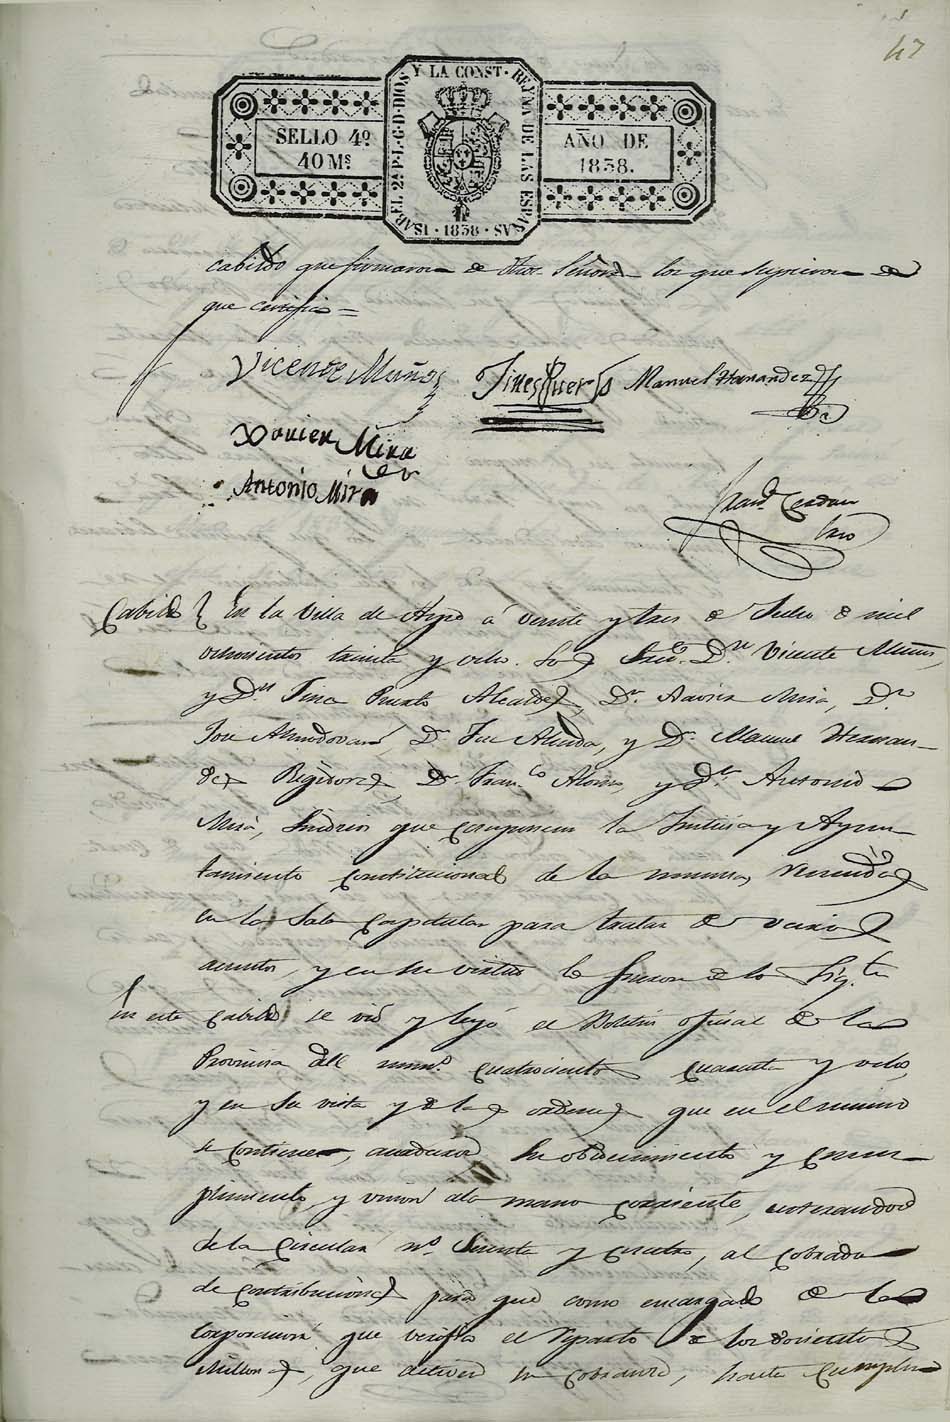 47
SELLO 4º
40 Ms
ISABEL 2ª P.L.G.D. DIOS Y LA CONST. REYNA DE LAS ESPAÑAS
1838
AÑO DE
1838.
cabildo que firmaron de dhos. Señores los que supieron de
que certifico =
Vicente Muñoz
Jines Puerto
Manuel Hernandez
Xavier Mira
Antonio Mira
Franco. Cerdan
Srio
Cabildo } En la Villa de Aspe á veinte y tres de Julio de mil
ochocientos treinta y ocho. Los Sres. Dn. Vicente Muñoz,
y Dn. Jines Puerto Alcaldes, Dn. Xavier Mira, Dn.
José Almodovar, Dn. José Almodo, y Dn. Manuel Hernan-
des Regidores, Dn. Franco. Alonso, y Dn. Antonio
Mira, Sindicos que componen la Justicia y Ayun-
tamiento constitucional de la misma, reunidos
en la Sala Capitular para tratar de varios
asuntos, y en su virtud lo hicieron de lo Sigte.
En este Cabildo se vió y leyó el Boletin oficial de la
Provincia del numo. cuatrocientos cuarenta y ocho,
y en su vista y de las ordenes que en el mismo
se contienen, acordaron su obedecimiento y cum-
plimiento y unión a la mano corriente, enterandose
de la Circular no. y cuatro, al Cobrador
de contribuciones para que como encargado de la
Corporacion que verifica el reparto de los doscientos
Millones, que active su cobranza, hasta cumplir